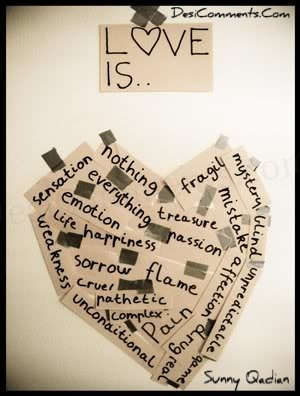 DesiComments.Com
LOVE
IS..
sensation
nothing
everything
fragil
mystery
blind
emotion
treasure
mistake
life
happiness
passion
affection
unpredictable
weakness
sorrow
flame
cruel
pathetic
complex
pain
unconditional
drug
real
game
Sunny Qadian